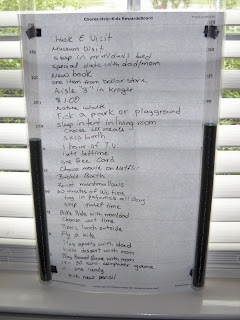 Chores Help-Kids RewardBoard
Chuck E Visit
Museum Visit
sleep in mom/dad's bed
special date with dad/mom
New book
one item from dollar store
Aisle "3" in Kroger
$1.00
Nature Walk
Pick a park or playground
sleep in tent in living room
Choose all meals
skip bath
1 hour of TV
late bedtime
Choose movie on Netflix
Bubble Bath
Roast marshmallows
30 minutes of Wii time
stay in pajamas all day
skip quiet time
Bike Ride with mom/dad
Choose art time
Picnic lunch outside
Fly a kite
Play sports with dad
Make dessert with mom
Play Board Game with mom
15-30 min. computer game
one candy
new pencil